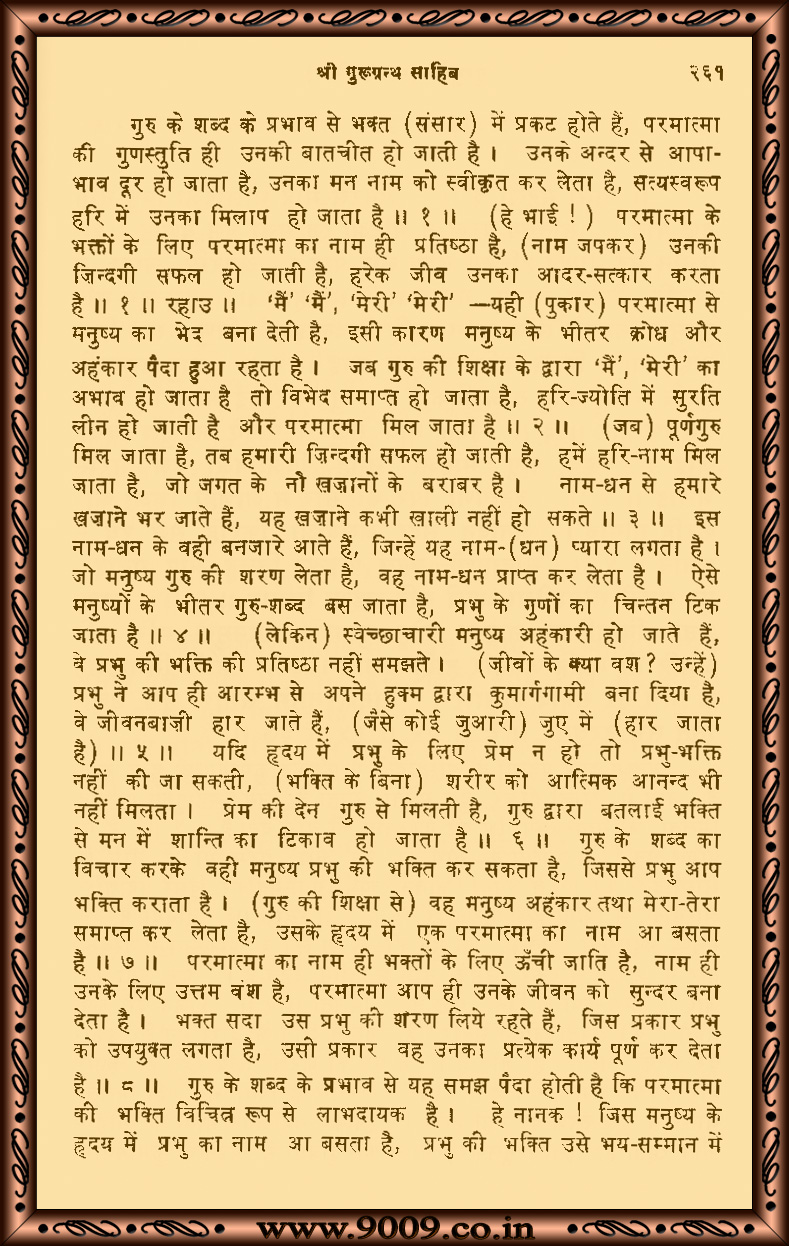 श्री गुरूग्रन्थ साहिब २६१
गुरु के शब्द के प्रभाव से भक्त (संसार) में प्रकट होते हैं, परमात्मा
की गुणस्तुति ही उनकी बातचीत हो जाती है । उनके अन्दर से आपा-
भाव दूर हो जाता है, उनका मन नाम को स्वीकृत कर लेता है, सत्यस्वरूप
हरि में उनका मिलाप हो जाता है ॥ १ ॥ (हे भाई ! ) परमात्मा के
भक्तों के लिए परमात्मा का नाम ही प्रतिष्ठा है, (नाम जपकर) उनकी
ज़िन्दगी सफल हो जाती है, हरेक जीव उनका आदर-सत्कार करता
है ॥ १ ॥ रहाउ ॥ ‘मैं’ ‘मैं’, ‘मेरी’ ‘मेरी’ —यही (पुकार) परमात्मा से
मनुष्य का भेद बना देती है, इसी कारण मनुष्य के भीतर क्रोध और
अहंकार पैदा हुआ रहता है । जब गुरु की शिक्षा के द्वारा ‘मैं’, ‘मेरी’ का
अभाव हो जाता है तो विभेद समाप्त हो जाता है, हरि-ज्योति में सुरति
लीन हो जाती है और परमात्मा मिल जाता है ॥ २ ॥ (जब) पूर्णगुरु
मिल जाता है, तब हमारी ज़िन्दगी सफल हो जाती है, हमें हरि-नाम मिल
जाता है, जो जगत के नौ खज़ानों के बराबर है । नाम-धन से हमारे
खज़ाने भर जाते हैं, यह खज़ाने कभी खाली नहीं हो सकते ॥ ३ ॥ इस
नाम-धन के वही बनजारे आते हैं, जिन्हें यह नाम-(धन) प्यारा लगता है ।
जो मनुष्य गुरु की शरण लेता है, वह नाम-धन प्राप्त कर लेता है । ऐसे
मनुष्यों के भीतर गुरु-शब्द बस जाता है, प्रभु के गुणों का चिन्तन टिक
जाता है ॥ ४ ॥ (लेकिन) स्वेच्छाचारी मनुष्य अहंकारी हो जाते हैं,
वे प्रभु की भक्ति की प्रतिष्ठा नहीं समझते । (जीवों के क्या वश ? उन्हें)
प्रभु ने आप ही आरम्भ से अपने हुक्म द्वारा कुमार्गगामी बना दिया है,
वे जीवनबाज़ी हार जाते हैं, (जैसे कोई जुआरी) जुए में (हार जाता
है) ॥ ५ ॥ यदि हृदय में प्रभु के लिए प्रेम न हो तो प्रभु-भक्ति
नहीं की जा सकती, (भक्ति के बिना) शरीर को आत्मिक आनन्द भी
नहीं मिलता । प्रेम की देन गुरु से मिलती है, गुरु द्वारा बतलाई भक्ति
से मन में शान्ति का टिकाव हो जाता है ॥ ६ ॥ गुरु के शब्द का
विचार करके वही मनुष्य प्रभु की भक्ति कर सकता है, जिससे प्रभु आप
भक्ति कराता है । (गुरु की शिक्षा से) वह मनुष्य अहंकार तथा मेरा-तेरा
समाप्त कर लेता है, उसके हृदय में एक परमात्मा का नाम आ बसता
है ॥ ७ ॥ परमात्मा का नाम ही भक्तों के लिए ऊँची जाति है, नाम ही
उनके लिए उत्तम वंश है, परमात्मा आप ही उनके जीवन को सुन्दर बना
देता है । भक्त सदा उस प्रभु की शरण लिये रहते हैं, जिस प्रकार प्रभु
को उपयुक्त लगता है, उसी प्रकार वह उनका प्रत्येक कार्य पूर्ण कर देता
है ॥ ८ ॥ गुरु के शब्द के प्रभाव से यह समझ पैदा होती है कि परमात्मा
की भक्ति विचित्र रूप से लाभदायक है । हे नानक ! जिस मनुष्य के
हृदय में प्रभु का नाम आ बसता है, प्रभु की भक्ति उसे भय-सम्मान में
www.9009.co.in